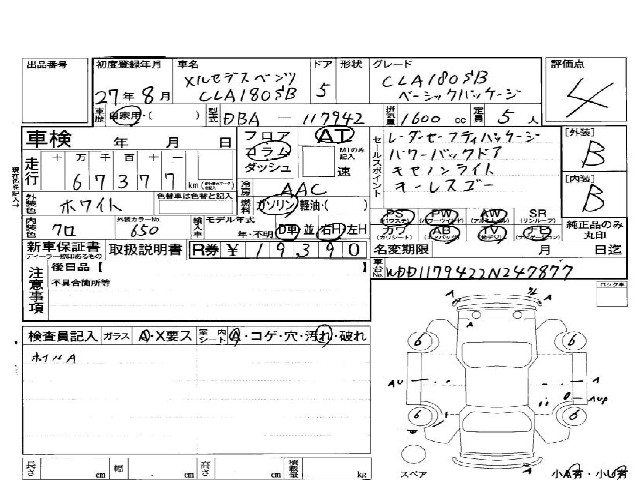 出品番号
初度登録年月
27年 8月
車名
メルセデスベンツ
CLA180SB
ドア
5
形状
グレード
CLA180SB
ベーシックパッケージ
評価点
4
車歴
自家用・( )
型式
DBA - 117942
排気量
1600 cc
定員
5 人
車検
年 月 日
フロア
コラム
ダッシュ
AT
MTのみ記入
速
セールスポイント
レーダーセーフティパッケージ
パワーバックドア
キセノンライト
キーレスゴー
[外装]
B
[内装]
B
走行
十 万 千 百 十 一
67377
km
冷房
AAC
外装色
ホワイト
色替車は色替と記入
燃料
ガソリン・軽油・( )
内装色
クロ
外装カラーNo
650
輸入車
モデル年式
年・不明
D車・並
右H・左H
PS PW AW SR
カワ AB TV
純正品のみ丸印
新車保証書
取扱説明書
R券 ¥19390
名変期限 月 日迄
注意事項
後日品 [ ]
不具合箇所等
車台No
WDD1179422N247877
検査員記入
ガラス A・X要ス
室内シート A・コゲ・穴・汚れ・破れ
ホイルA
6
6
6
6
A
A
A
AU
A
A
AUP
スペア
小A有・小U有
長さ cm
幅 cm
高さ cm
積載量 kg